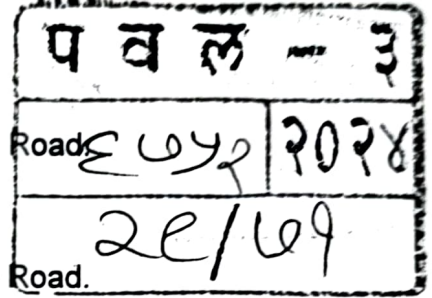 प व ल - ३
Road ६७५२ २०२४
२९/७१
Road.